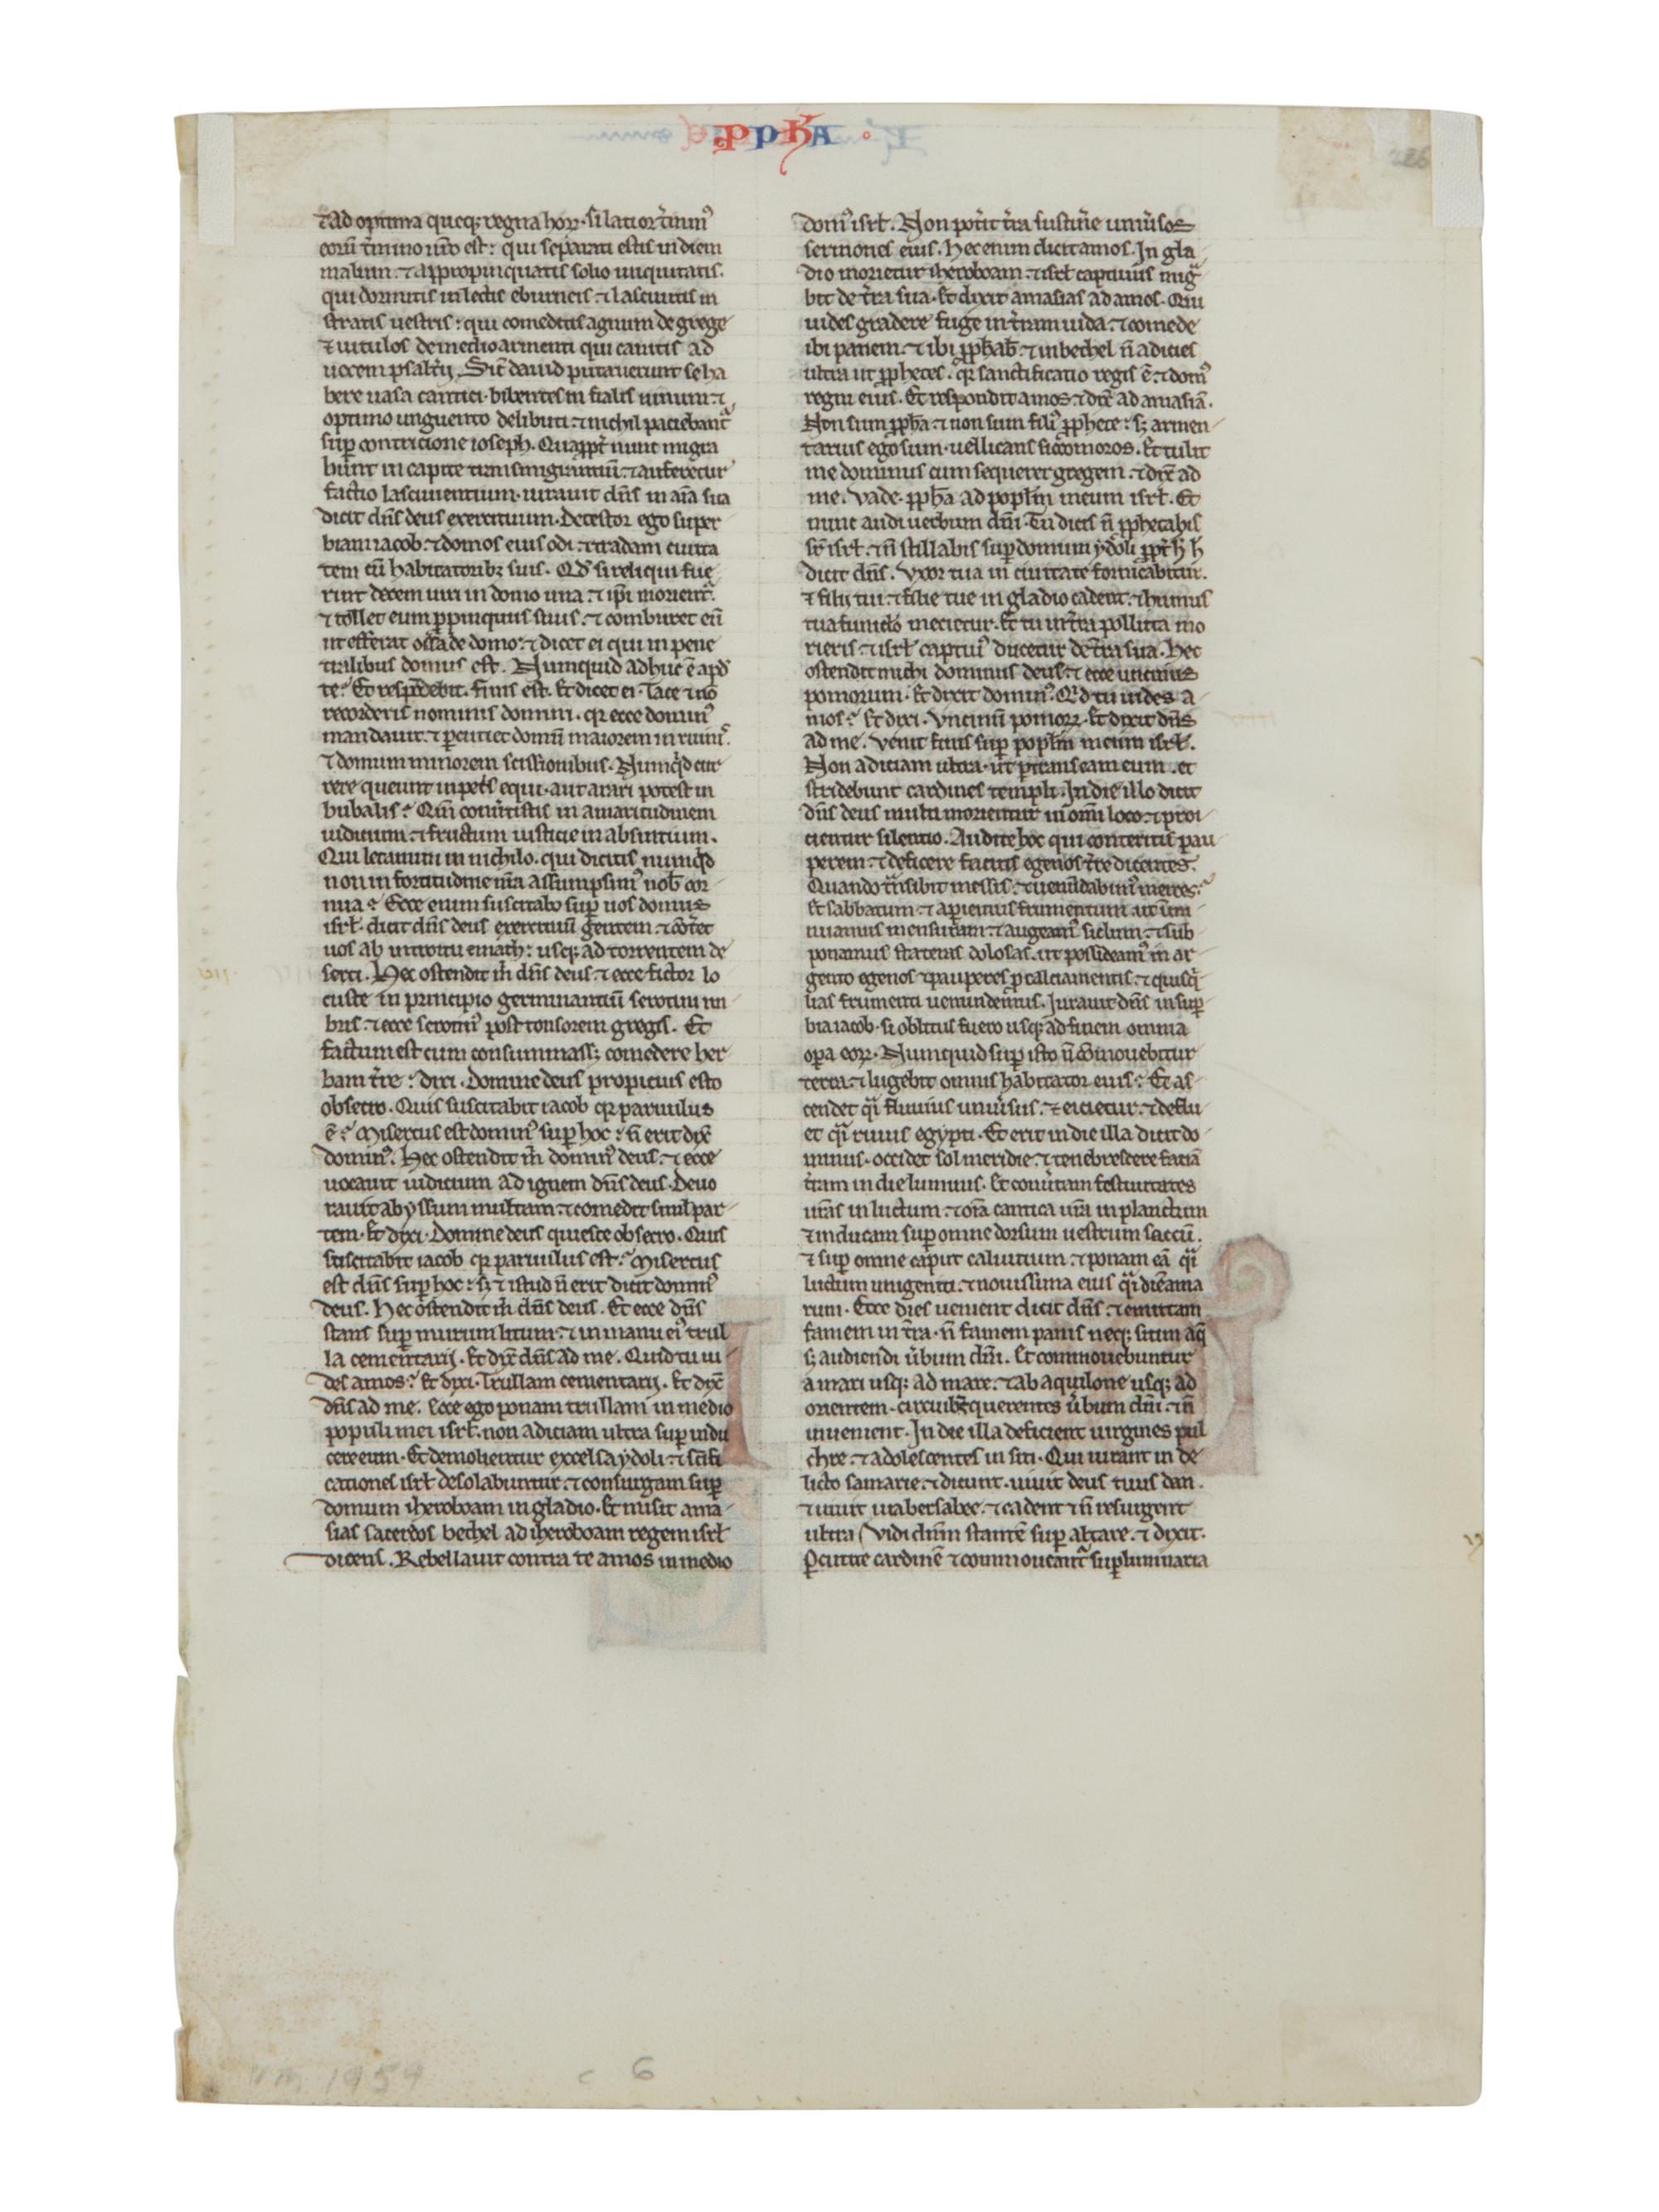 PPHA
⁊ ad optima queq; regna hoꝝ · si latior t̄minꝰ
eorū t̄mino ur̄o est : qui separati estis in diem
malum · ⁊ appropinquatis solio iniquitatis .
qui dormitis in lectis eburneis · ⁊ lasciuitis in
stratis uestris : qui comeditis agnum de grege
⁊ uitulos de medio armenti qui canitis ad
uocem psalt̄ij . Sic̄ dauid putauerunt se ha
bere uasa cantici · bibentes in fialis uinum · ⁊
optimo unguento delibuti · ⁊ nichil paciebant᷑
sup̱ contricione ioseph . Quapp̱t̄ nunc migra
bunt in capite transmigrantiū · ⁊ auferetur
factio lasciuientium · iurauit dn̄s in aīa sua
dicit dn̄s deus exercituum · Detestor ego super
biam iacob · ⁊ domos eius odi · ⁊ tradam ciuita
tem cū habitatorib; suis . Qd̄ si reliqui fue
rint decem uiri in domo una · ⁊ ip̄i morient᷑ .
⁊ tollet eum ꝓpinquus suus · ⁊ comburet eū
ut efferat ossa de domo · ⁊ dicet ei qui in pene
tralibus domus est . Numquid adhuc ē apd̄
te ? Et respōdebit . finis est . Et dicet ei . Tace ⁊ nō
recorderis nominis domini . qꝛ ecce dominꝰ
mandauit · ⁊ ꝑcutiet domū maiorem in ruinis .
⁊ domum minorem scissionibus . Numqͥd cur
rere queunt in pet̄s equi · aut arari potest in
bubalis ? Qm̄ conuertistis in amaritudinem
iudicium · ⁊ fructum iusticie in absintium .
Qui letamini in nichilo . qui dicitis numqͥd
non in fortitudine nr̄a assumpsimꝰ nob̄ cor
nua ? Ecce enim suscitabo sup̱ uos domus
isrl̄ · dicit dn̄s deus exercituū gentem · ⁊ cōt̄et
uos ab introitu emath : usq; ad torrentem de
serti . Hec ostendit m̄ dn̄s deus · ⁊ ecce fictor lo
custe in principio germinantiū serotini im
bris · ⁊ ecce serotinꝰ post tonsorem gregis . Et
factum est cum consummass; comedere her
bam t̄re : dixi . Domine deus propicius esto
obsecro . Quis suscitabit iacob qꝛ paruulus
ē ? Misertus est dominꝰ sup̱ hoc : n̄ erit dix̄
dominꝰ . Hec ostendit m̄ dominꝰ deus · ⁊ ecce
uocauit iudicium ad ignem dn̄s deus · Deuo
rauit abyssum multam · ⁊ comedit simul par
tem . Et dixi . Domine deus quiesce obsecro . Quis
suscitabit iacob qꝛ paruulus est ? Misertus
est dn̄s sup̱ hoc : s; ⁊ istud n̄ erit dicit dominꝰ
deus . Hec ostendit m̄ dn̄s deus . Et ecce dn̄s
stans sup̱ murum litum · ⁊ in manu eiꝰ trul
la cement̄arij . Et dix̄ dn̄s ad me . Quid tu ui
des amos ? Et dixi . Trullam cementarij . Et dix̄
dn̄s ad me . Ecce ego ponam trullam in medio
populi mei isrl̄ . non adiciam ultra sup̱ indu
cere eum . Et demolientur excelsa ydoli · ⁊ sc̄ifi
cationes isrl̄ desolabuntur · ⁊ consurgam sup̱
domum iheroboam in gladio . Et misit ama
sias sacerdos bethel ad iheroboam regem isrl̄
dicens . Rebellauit contra te amos in medio
domꝰ isrl̄ . Non pot̄it t̄ra sustin̄e uniu̓sos
sermones eius . Hec enim dicit amos . In gla
dio morietur iheroboam · ⁊ isrl̄ captiuus migͣ
bit de t̄ra sua . Et dixit amasias ad amos . Qui
uides gradere fuge in t̄ram iuda · ⁊ comede
ibi panem · ⁊ ibi ꝓphab̄ · ⁊ in bethel n̄ adicies
ultra ut ꝓphetes . qꝛ sanctificatio regis ē · ⁊ domꝰ
regni eius . Et respondit amos · ⁊ dix̄ ad amasiā .
Non sum ꝓpha · ⁊ non sum filiꝰ ꝓphete : s; armen
tarius ego sum · uellicans siccomoros . Et tulit
me dominus cum sequerer gregem · ⁊ dix̄ ad
me . Vade . ꝓpha ad popl̄m meum isrl̄ . Et
nunc audi uerbum dn̄i . Tu dicis n̄ ꝓphetabis
sr̄ isrl̄ · ⁊ n̄ stillabis sup̱ domum ydoli ꝓpt̄ h̄ h̄
dicit dn̄s . Vxor tua in ciuitate fornicabitur .
⁊ filij tui · ⁊ filie tue in gladio cadent · ⁊ humus
tua funiclo metietur . Et tu in t̄ra polluta mo
rieris · ⁊ isrl̄ captiuꝰ ducetur de t̄ra sua . Hec
ostendit michi dominus deus · ⁊ ecce uncinus
pomorum . Et dixit dominꝰ . Qͥd tu uides a
mos ? Et dixi . Vncinū pomoꝝ . Et dixit dn̄s
ad me . Venit finis sup̱ popl̄m meum isrl̄ .
Non adiciam ultra · ut ꝑtranseam eum . et
stridebunt cardines templi . In die illo dicit
dn̄s deus multi morientur in om̄i loco · ⁊ proi
cientur silentio . Audite hoc qui conteritis pau
perem · ⁊ deficere facitis egenos t̄re dicentes .
Quando tͣnsibit messis · ⁊ uenūdabimꝰ merces ?
Et sabbatum · ⁊ aperiemus frumentum ut īmi
nuamus mensuram · ⁊ augeamꝰ siclum · ⁊ sub
ponamus stateras dolosas . ut possideamꝰ in ar
gento egenos ⁊ pauperes ꝓ calciamentis · ⁊ quisqͥ
lias frumenti uenundemus . Jurauit dn̄s in sup̱
bia iacob · si oblitus fuero usq; ad finem omnia
opera eoꝝ . Numquid sup̱ isto n̄ cōmouebitur
terra · ⁊ lugebit omnis habitator eius ? Et as
cendet qͣi fluuius uniu̓sus · ⁊ eicietur · ⁊ deflu
et qͣi riuus egypti . Et erit in die illa dicit do
minus · occidet sol meridie · ⁊ tenebrescere faciā
t̄ram in die luminis . Et conu̓tam festiuitates
ur̄as in luctum · ⁊ oīa cantica ur̄a in planctum
⁊ inducam sup̱ omne dorsum uestrum saccū .
⁊ sup̱ omne caput caluitium · ⁊ ponam eā qͣi
luctum unigeniti · ⁊ nouissima eius qͣi diē ama
rum . Ecce dies uenient dicit dn̄s · ⁊ emittam
famem in t̄ra · n̄ famem panis neq; sitim aq̄
s; audiendi u̓bum dn̄i . Et commouebuntur
a mari usq; ad mare · ⁊ ab aquilone usq; ad
orientem · circuibūt querentes u̓bum dn̄i · ⁊ n̄
inuenient . In die illa deficient uirgines pul
chre · ⁊ adolescentes in siti . Qui iurant in de
licto samarie · ⁊ dicunt . uiuit deus tuus dan .
⁊ uiuit uia bersabee · ⁊ cadent ⁊ n̄ resurgent
ultra Vidi dn̄m stantē sup̱ altare · ⁊ dixit .
Ꝑcute cardinē ⁊ commoueant᷑ supluminaria
1959
c 6